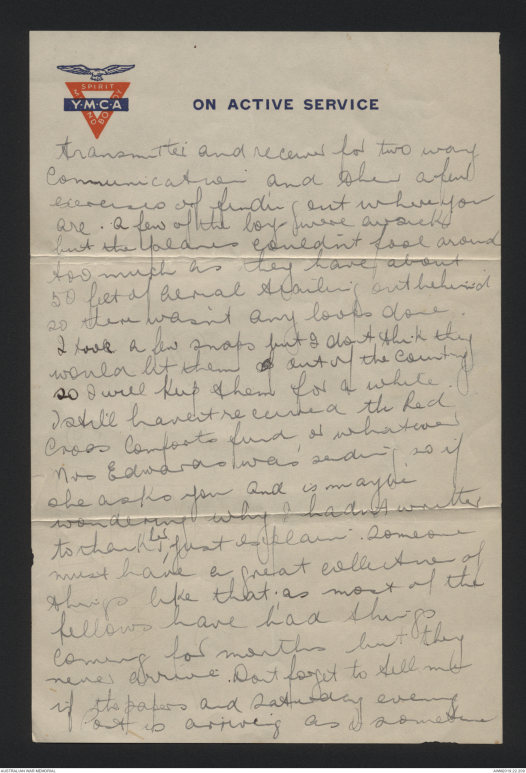 SPIRIT
Y·M·C·A
MIND BODY
ON ACTIVE SERVICE
transmitter and receiver for two way
communication and then a few
exercises of finding out where you
are. A few of the boys were airsick
but the planes couldn't fool around
too much as they have about
50 feet of aerial trailing out behind
so there wasn't any loops done.
I took a few snaps but I don't think they
would let them out of the country
so I will keep them for a while.
I still havent received the Red
Cross Comforts fund or whatever
Mrs Edwards was sending so if
she asks you and is maybe
wondering why I hadn't written
to thank her, just explain. Someone
must have a great collection of
things like that as most of the
fellows have had things
coming for months but they
never arrive. Dont forget to tell me
if the papers and Saturday evening
post is arriving as sometime
AUSTRALIAN WAR MEMORIAL